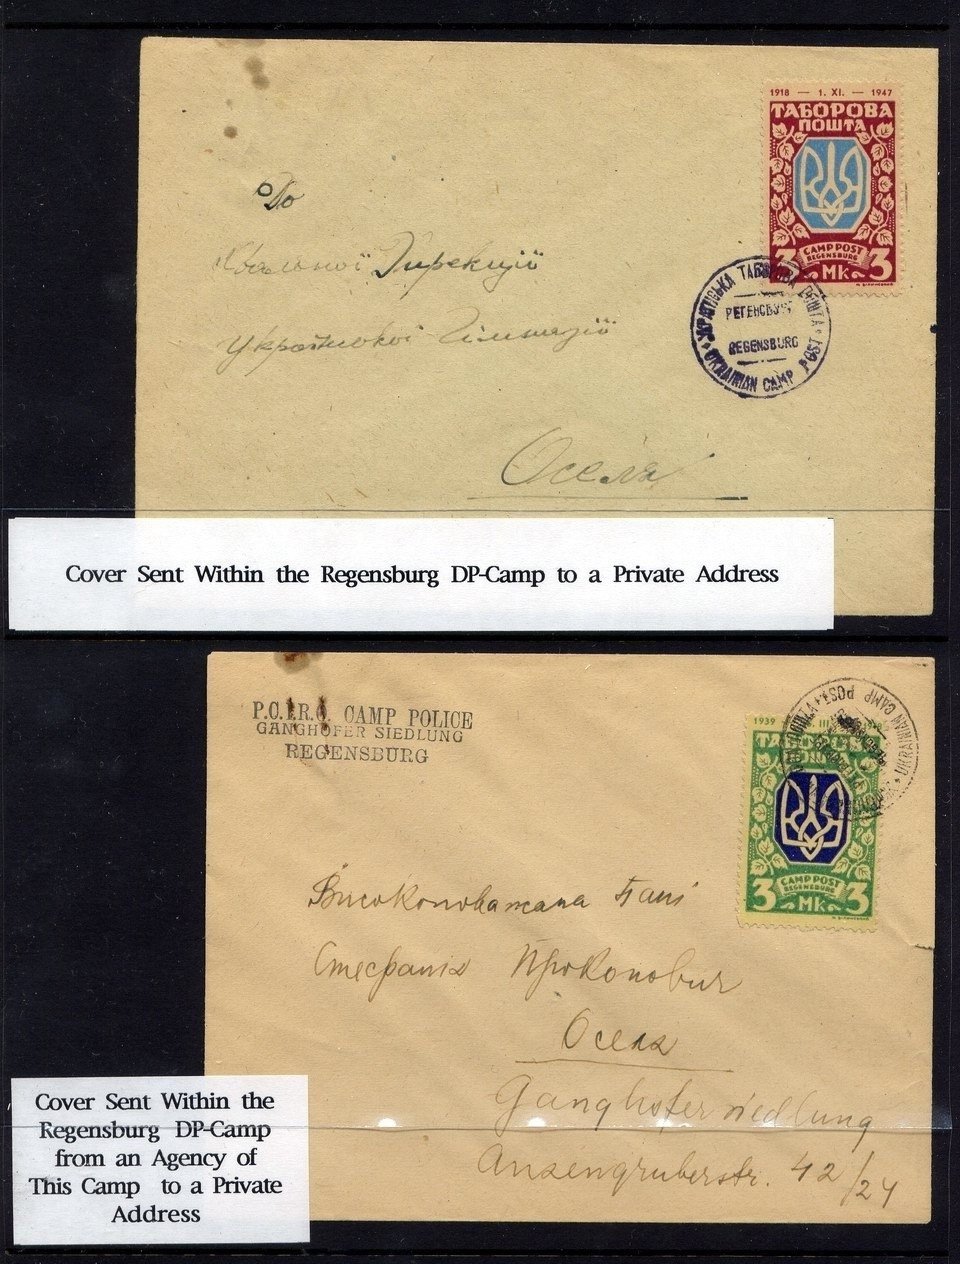 1918 — 1. XI. — 1947
ТАБОРОВА
ПОШТА
CAMP POST
REGENSBURG
3 Mk 3
УКРАЇНСЬКА ТАБОРОВА ПОШТА
РЕГЕНСБУРГ
REGENSBURG
UKRAINIAN CAMP POST
До
Хвальної Дирекції
Української Гімназії
Оселя
Cover Sent Within the Regensburg DP-Camp to a Private Address
P.C.I.R.O. CAMP POLICE
GANGHOFER SIEDLUNG
REGENSBURG
UKRAINIAN CAMP POST
1939 III
ТАБОРОВА
ПОШТА
CAMP POST
REGENSBURG
3 Mk 3
Високоповажана Пані
Стефанія Прокопович
Оселя
Ganghofersiedlung
Anzengruberstr. 42/24
Cover Sent Within the
Regensburg DP-Camp
from an Agency of
This Camp to a Private
Address